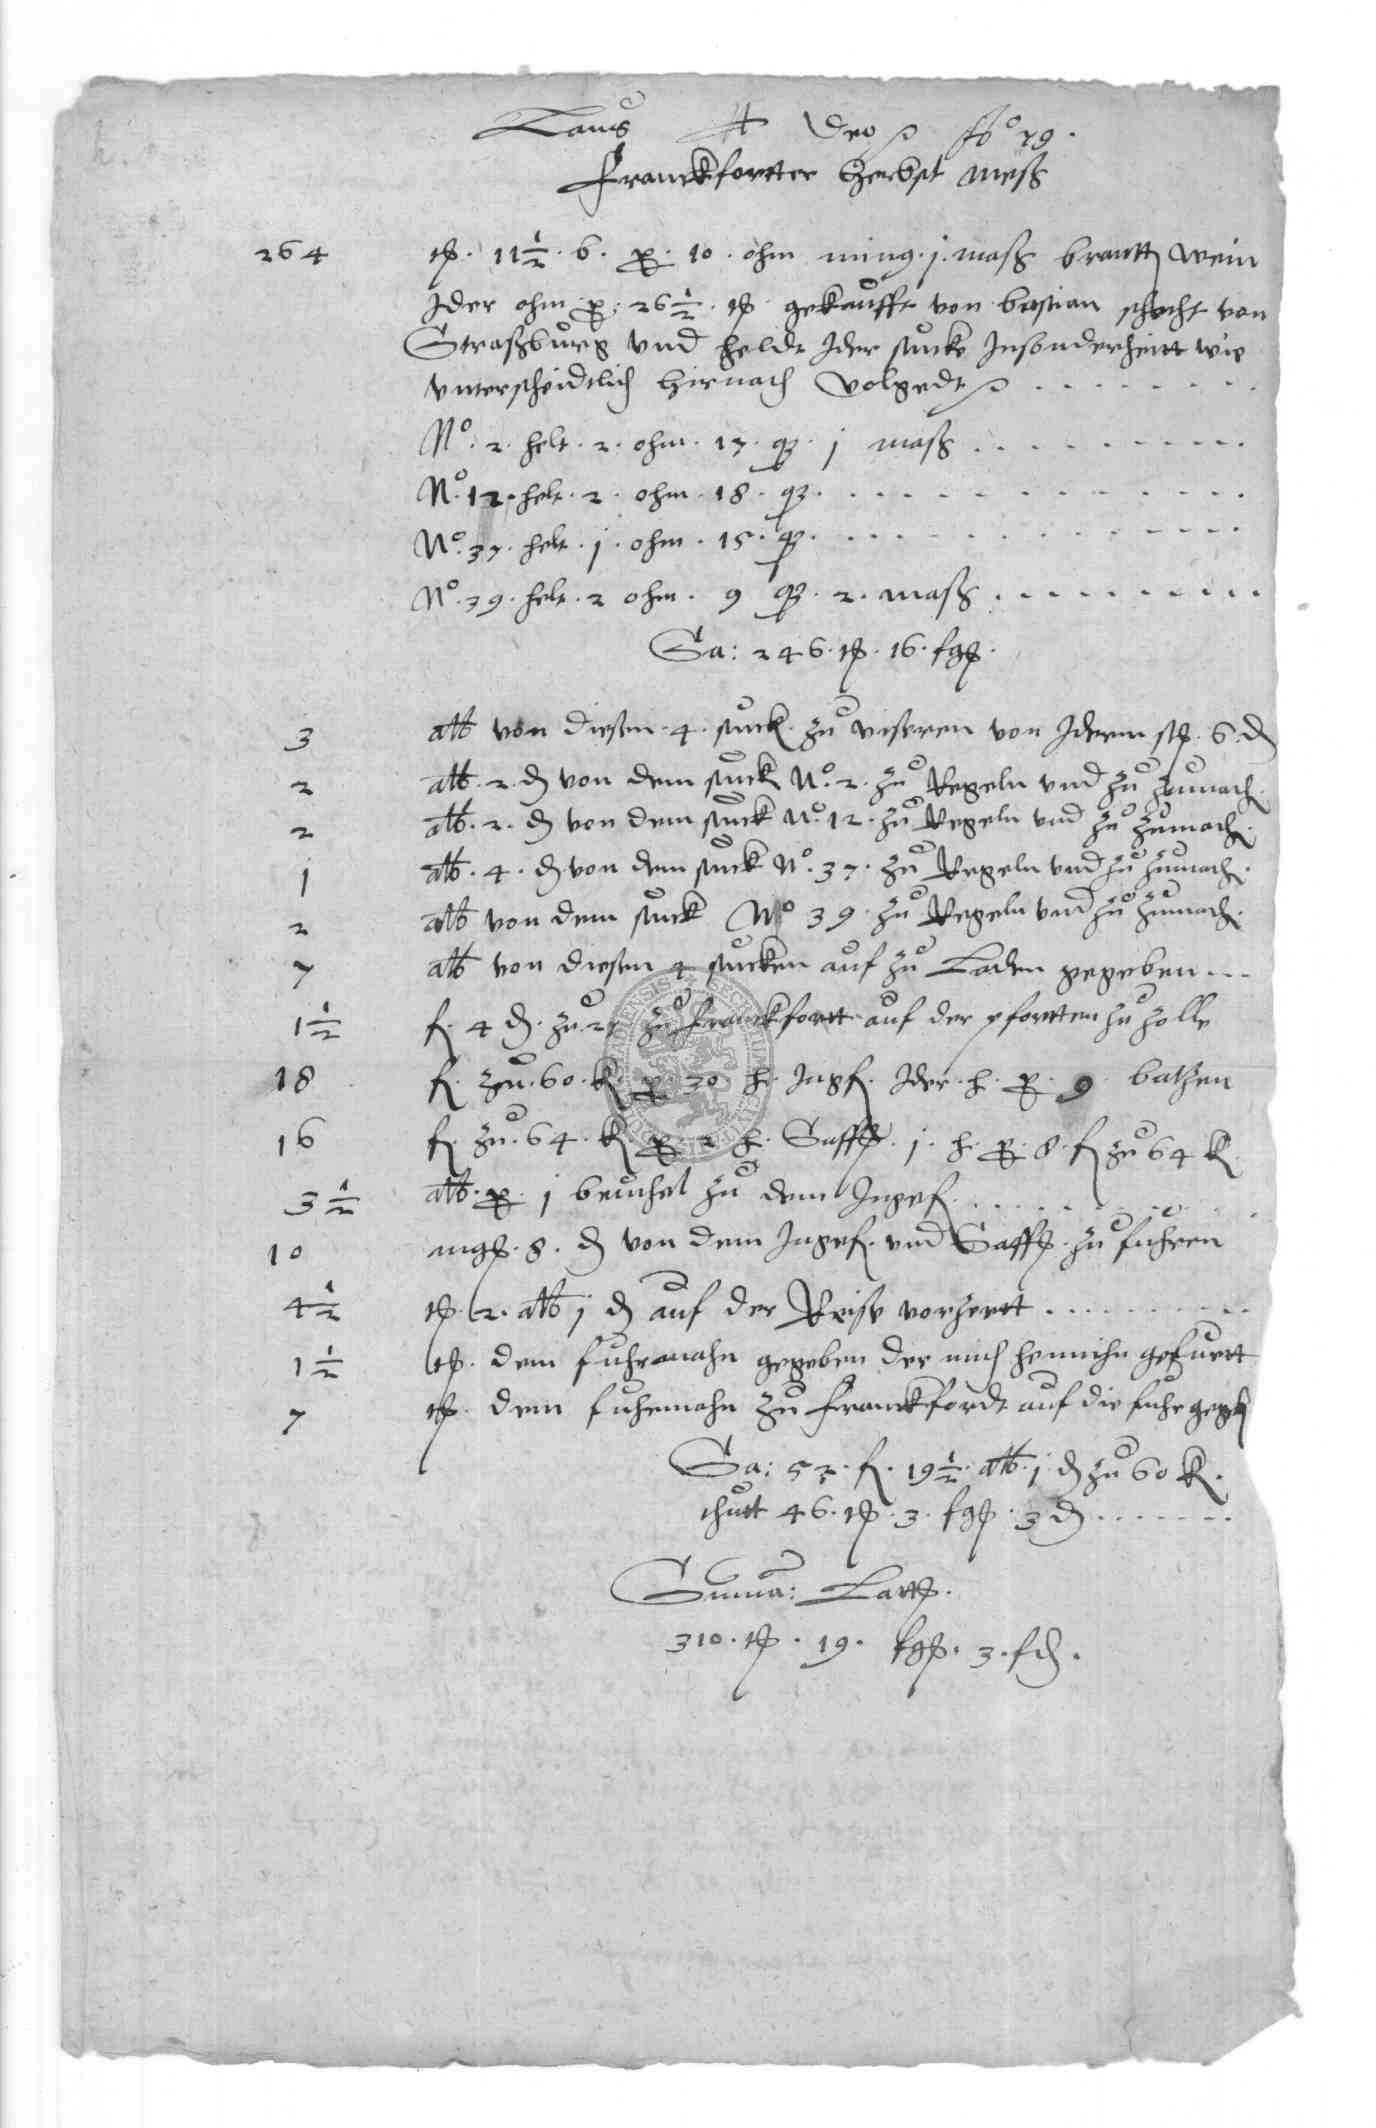 Laus Deo Ao 79.
Franckfortter Herbst Meß
264 tlr. 11 1/2. b. p. 10. ohm ming. j. maß brantt Wein
Ider ohm p. 26 1/2. tlr gekaufft von bastian schecht von
Straßburg vnd heldt Ider stucke Insonderheitt wie
vnterscheidtlich hirnach Volgedt
No. 2. helt. 2. ohm. 17. j maß
No. 12. helt. 2. ohm. 18.
No. 37. helt. j. ohm. 15.
No. 39. helt. 2 ohm. 9 2. maß
Sa: 246. tlr. 16. sgr.
3 alb von diesen. 4. stuck. zu visieren von Iderm stk. 6 d
2 alb. 2. d von dem stuck No. 2. zu Regeln vnd zu zumach.
2 alb. 2. d von dem stuck No. 12. zu Regeln vnd zu zumach.
1 alb. 4. d von dem stuck No. 37. zu Regeln vnd zu zumach.
2 alb von dem stuck No 39. zu Regeln vnd zu zumach.
7 alb von diesen 4 stucken auf zu Laden gegeben
1 1/2 f. 4 d. zu 27 zu Franckfortt auf der pfortten zu zolle
18 f. zu. 60. K. p. 30 h. Ingf. Ider. h. p. 9 batzen
16 f. zu. 64. K p. 2 h. Saff. j. h. p. 8. f zu 64 K
3 1/2 alb. p. j beuchel zu dem Ingef.
10 mgr. 8. d von dem Ingef. vnd Saff. zu fuhren
4 1/2 tlr. 2. alb j d auf der Reise vorzertt
1 1/2 tlr. dem fuhrmahn gegeben der mich gefurtt
7 tlr. dem fuhrmahn zu Franckfordt auf die fuhr gegeb
Sa: 52. f. 19 1/2. alb. j d zu 60 K.
thutt 46. tlr. 3. sgr. 3 d
Suma: Latt.
310. tlr. 19. sgr. 3. d.